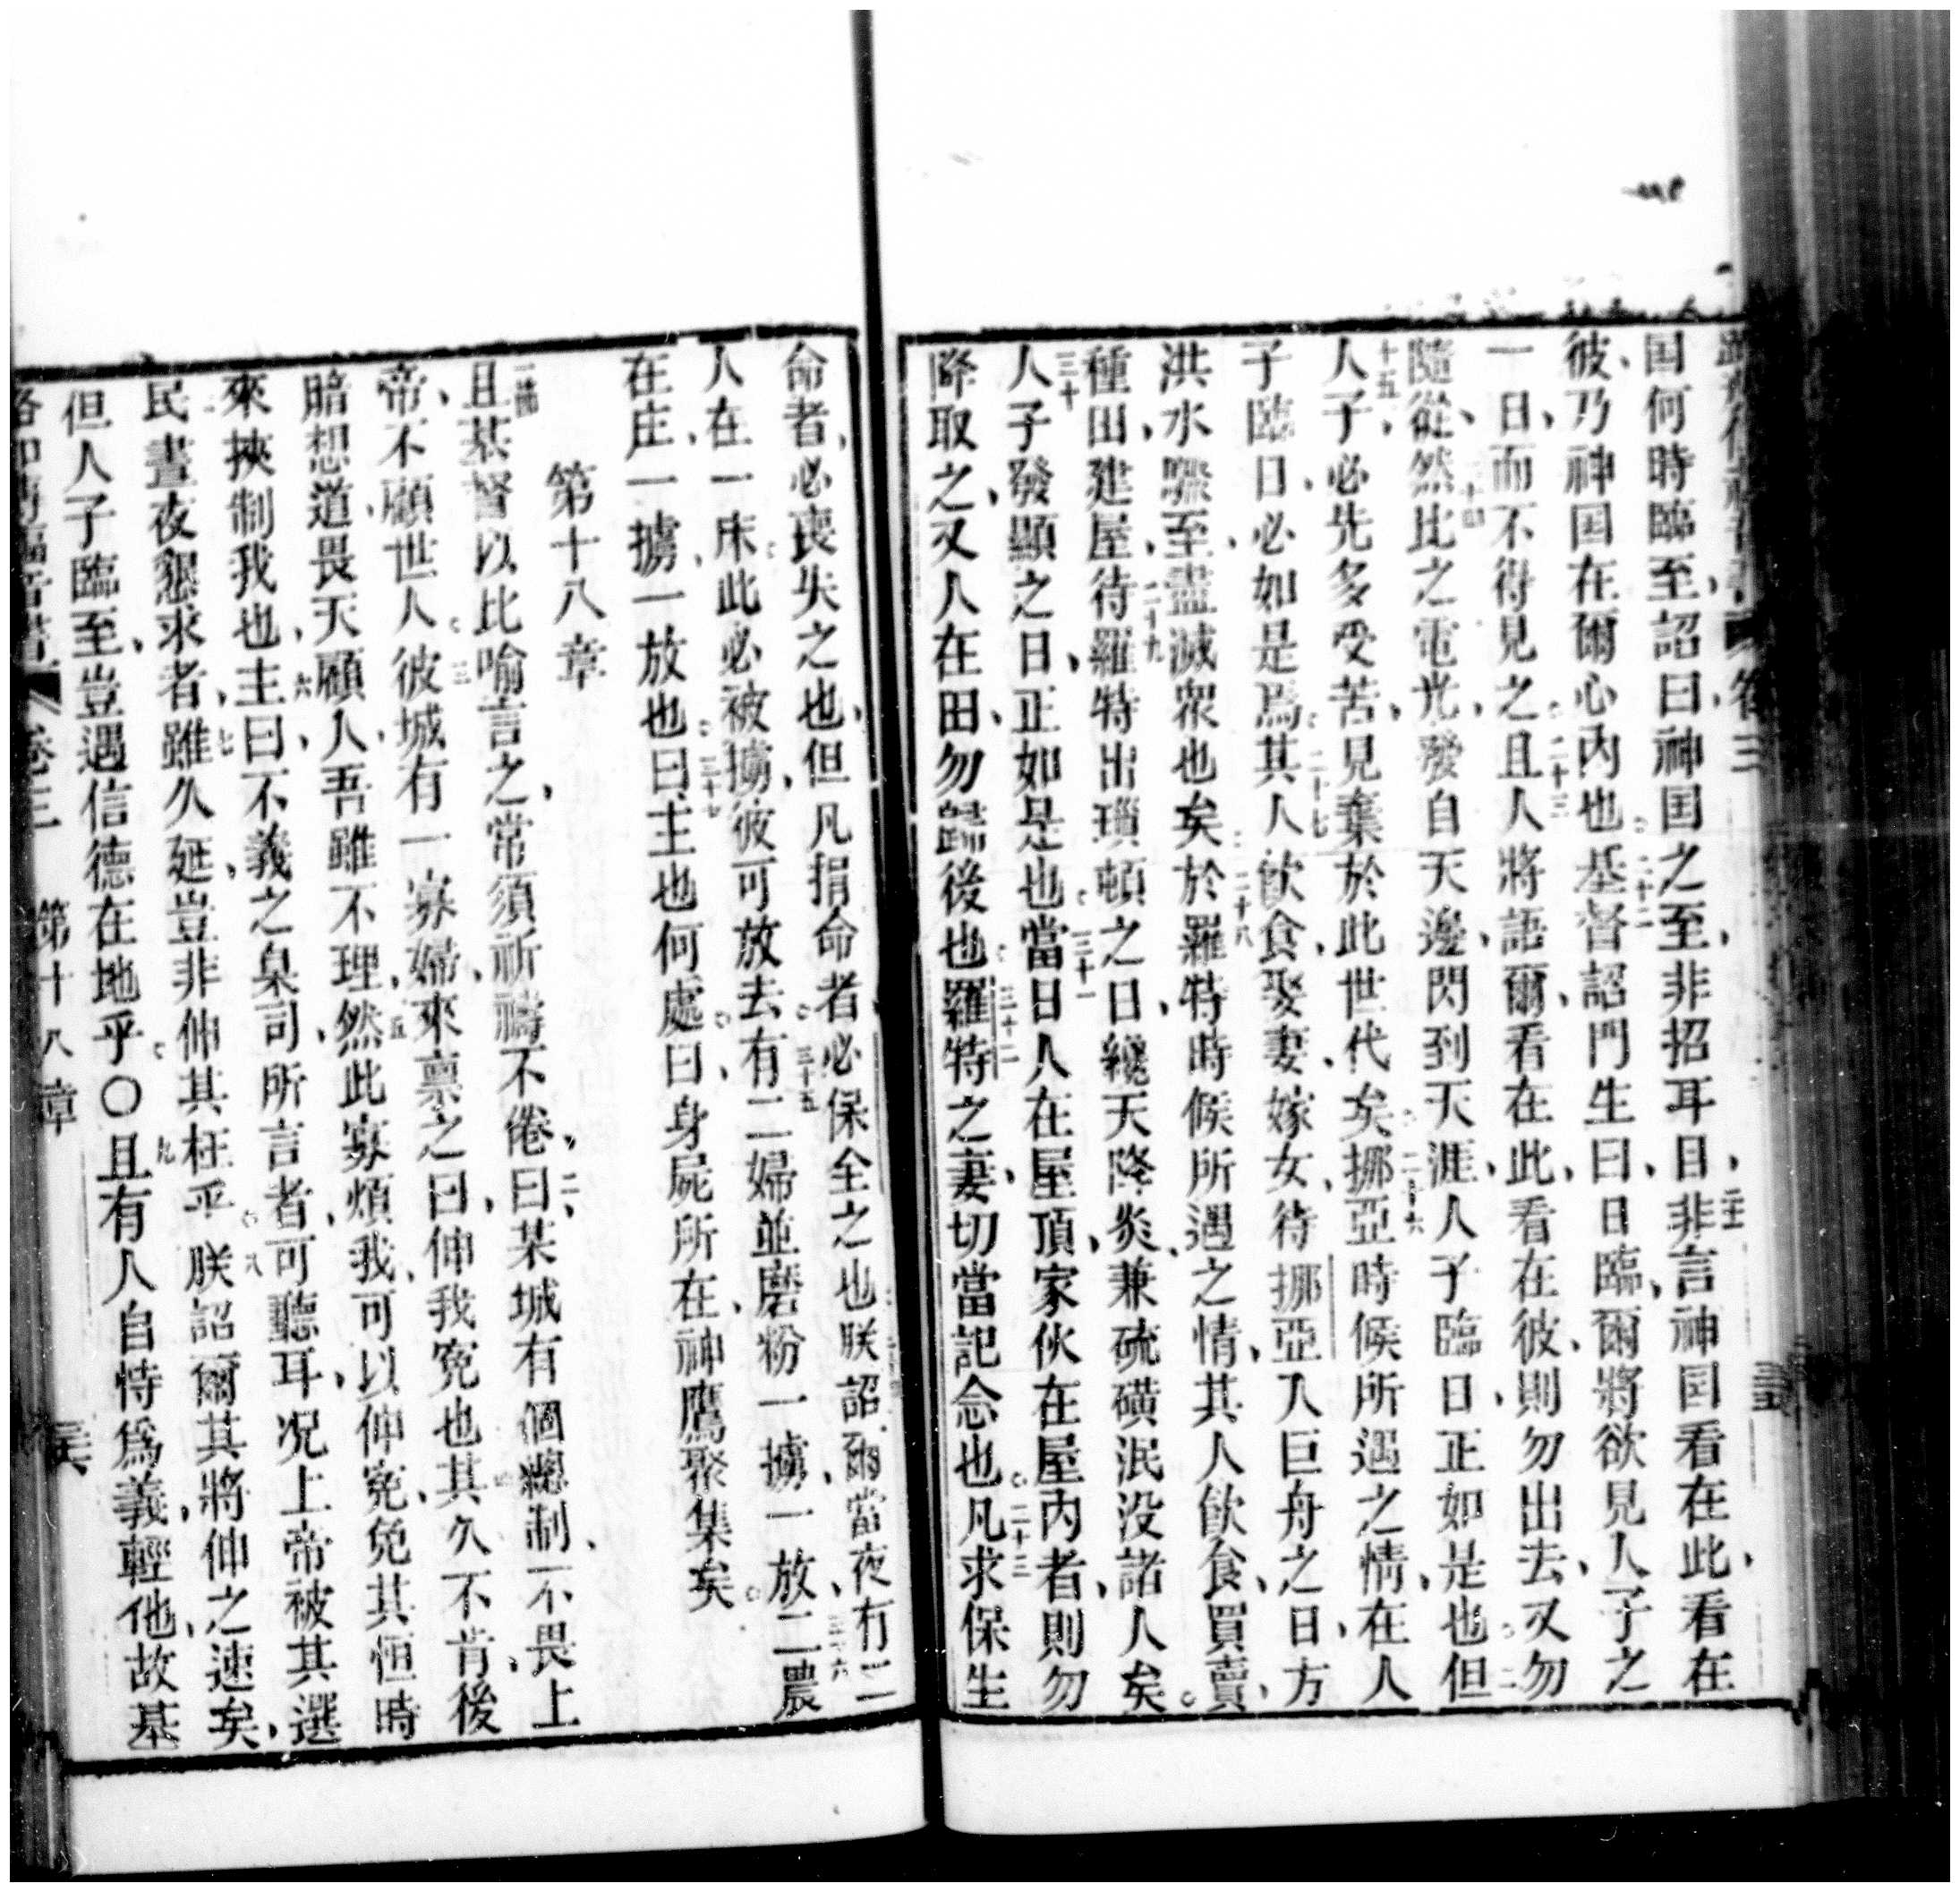 卷三
国何時臨至、詔曰神国之至、非招耳目、二十一非言神国看在此、看在
彼、乃神国在爾心內也。二十二基督詔門生曰、日臨、爾將欲見人子之
一日、而不得見之。二十三且人將語爾、看在此、看在彼、則勿出去、又勿
隨從、二十四然比之電光、發自天邊、閃到天涯、人子臨日、正如是也。但二
十五、人子必先多受苦、見棄於此世代矣。二十六挪亞時候所遇之情、在人
子臨日、必如是焉。二十七其人飲食、娶妻、嫁女、待挪亞入巨舟之日、方
洪水驟至、盡滅眾也矣。二十八於羅特時候所遇之情、其人飲食、買賣、
種田、建屋、二十九待羅特出瑣頓之日、纔天降炎、兼硫磺泯没諸人矣。
三十人子發顯之日、正如是也。三十一當日人在屋頂、家伙在屋內者、則勿
降取之、又人在田、勿歸後也。三十二羅特之妻、切當記念也。二十三凡求保生
命者、必喪失之也、但凡捐命者、必保全之也朕詔爾當夜、有二
人在一床、此必被擄、彼可放去。三十五有二婦並磨粉、一擄、一放、三十六二農
在庄、一擄、一放也。三十七曰、主也何處。曰、身屍所在、神鷹聚集矣。
第十八章
一節且基督以比喻言之、常須祈禱不倦、二曰、某城有個總制、不畏上
帝、不顧世人。三彼城有一寡婦、來禀之曰、伸我寃也。其久不肯、後
暗想道、畏天顧人、吾雖不理、五然此寡煩我、可以伸寃、免其恒時
來挾制我也。六主曰、不義之臬司、所言者、可聽耳、况上帝被其選
民晝夜懇求者、七雖久延、豈非伸其枉乎。八朕詔爾其將伸之速矣、
但人子臨至、豈遇信德在地乎。〇九且有人自恃爲義、輕他、故基
卷三 第十八章